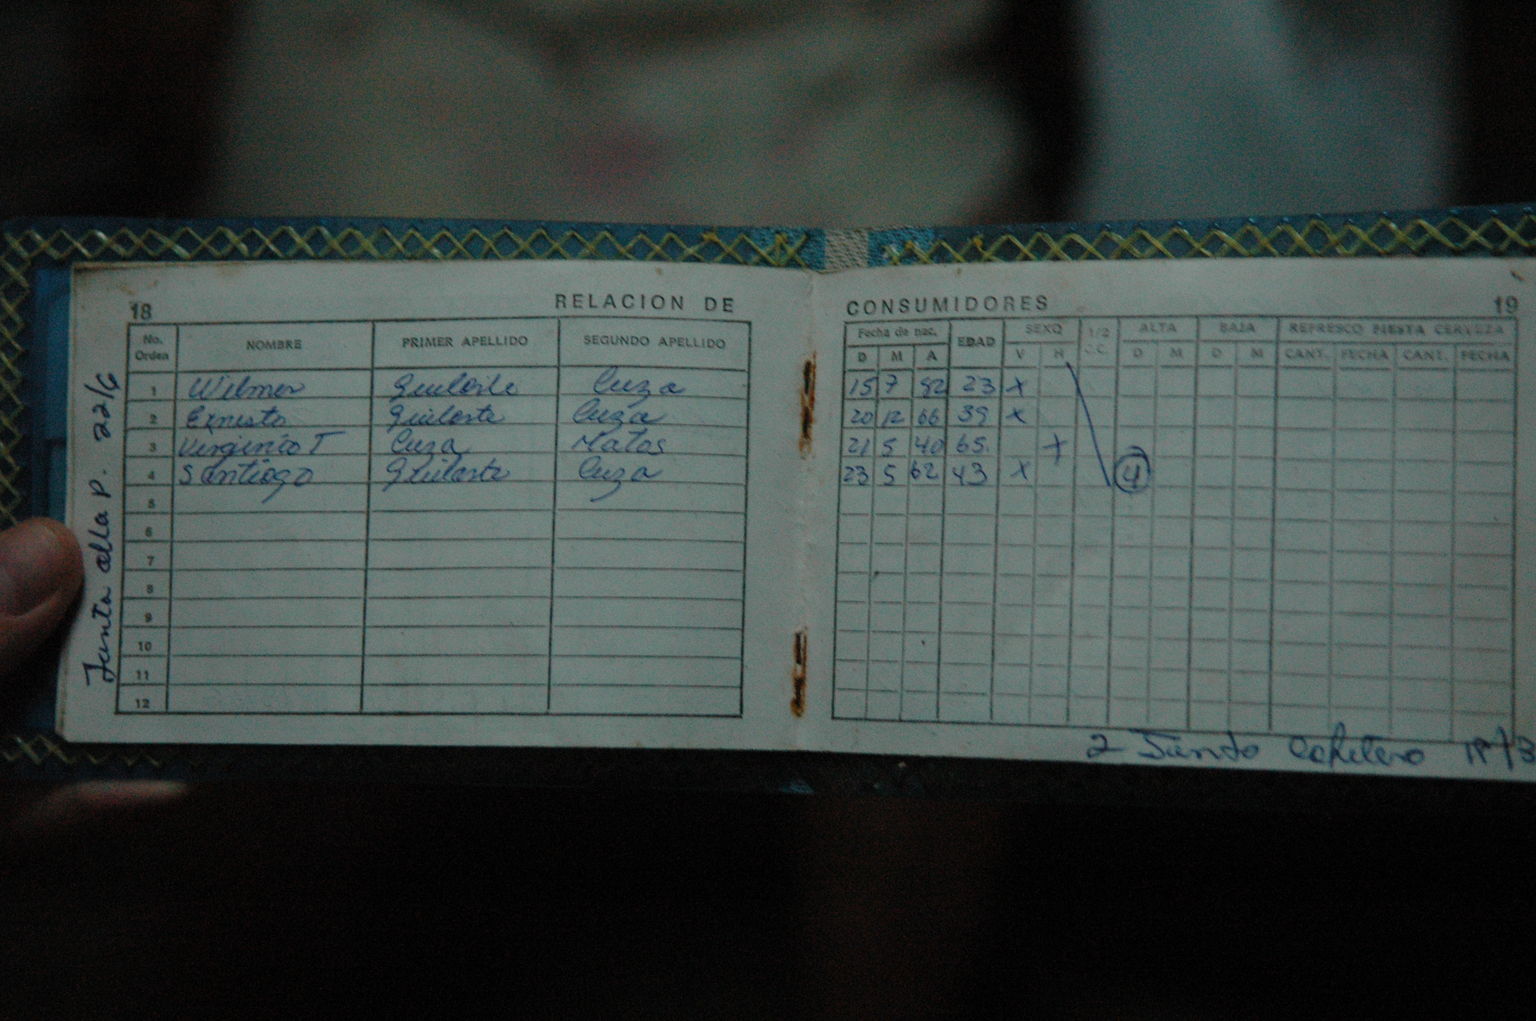 18 RELACION DE CONSUMIDORES 19
No. Orden NOMBRE PRIMER APELLIDO SEGUNDO APELLIDO Fecha de nac. EDAD SEXO 1/2 C.C. ALTA BAJA REFRESCO FIESTA CERVEZA
D M A V H D M D M CANT. FECHA CANT. FECHA
1 Wilmer Guilarte Cuza 15 7 82 23 x
2 Ernesto Guilarte Cuza 20 12 66 39 x
3 Virginia T Cuza Matos 21 5 40 65. x
4 Santiago Guilarte Cuza 23 5 62 43 x 4
5
6
7
8
9
10
11
12
Junta olla P. 22/6
2